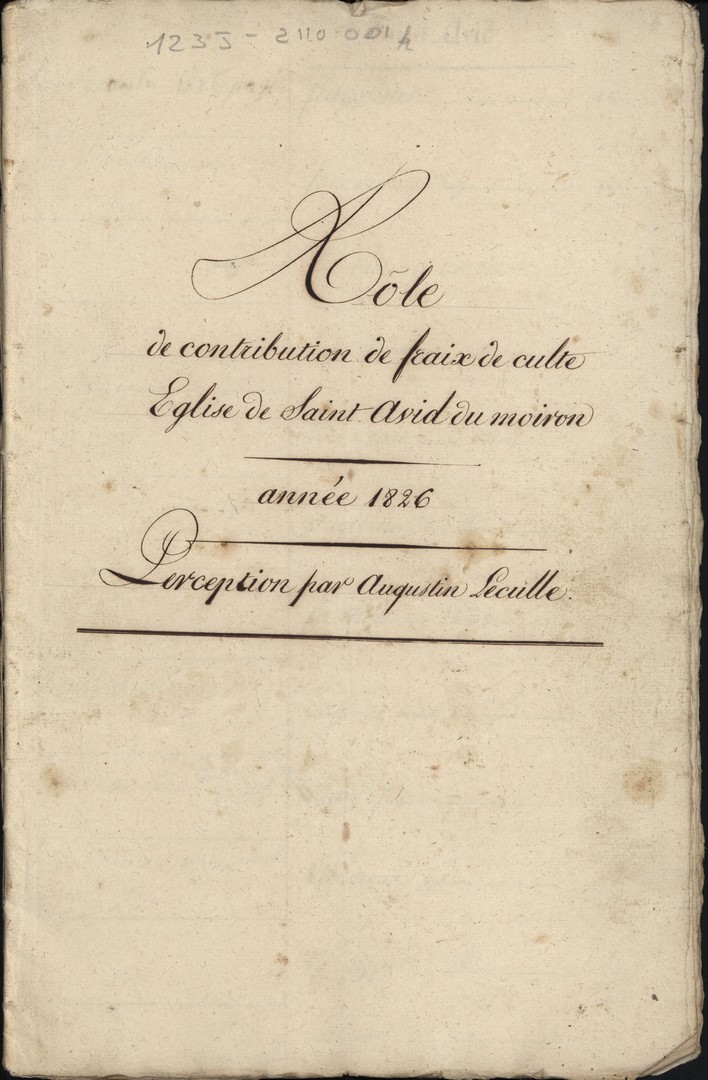 123J - 2110 001
Rôle
de contribution de fraix de culte
Eglise de Saint Avid du moiron
année 1826
Perception par Augustin Leculle.